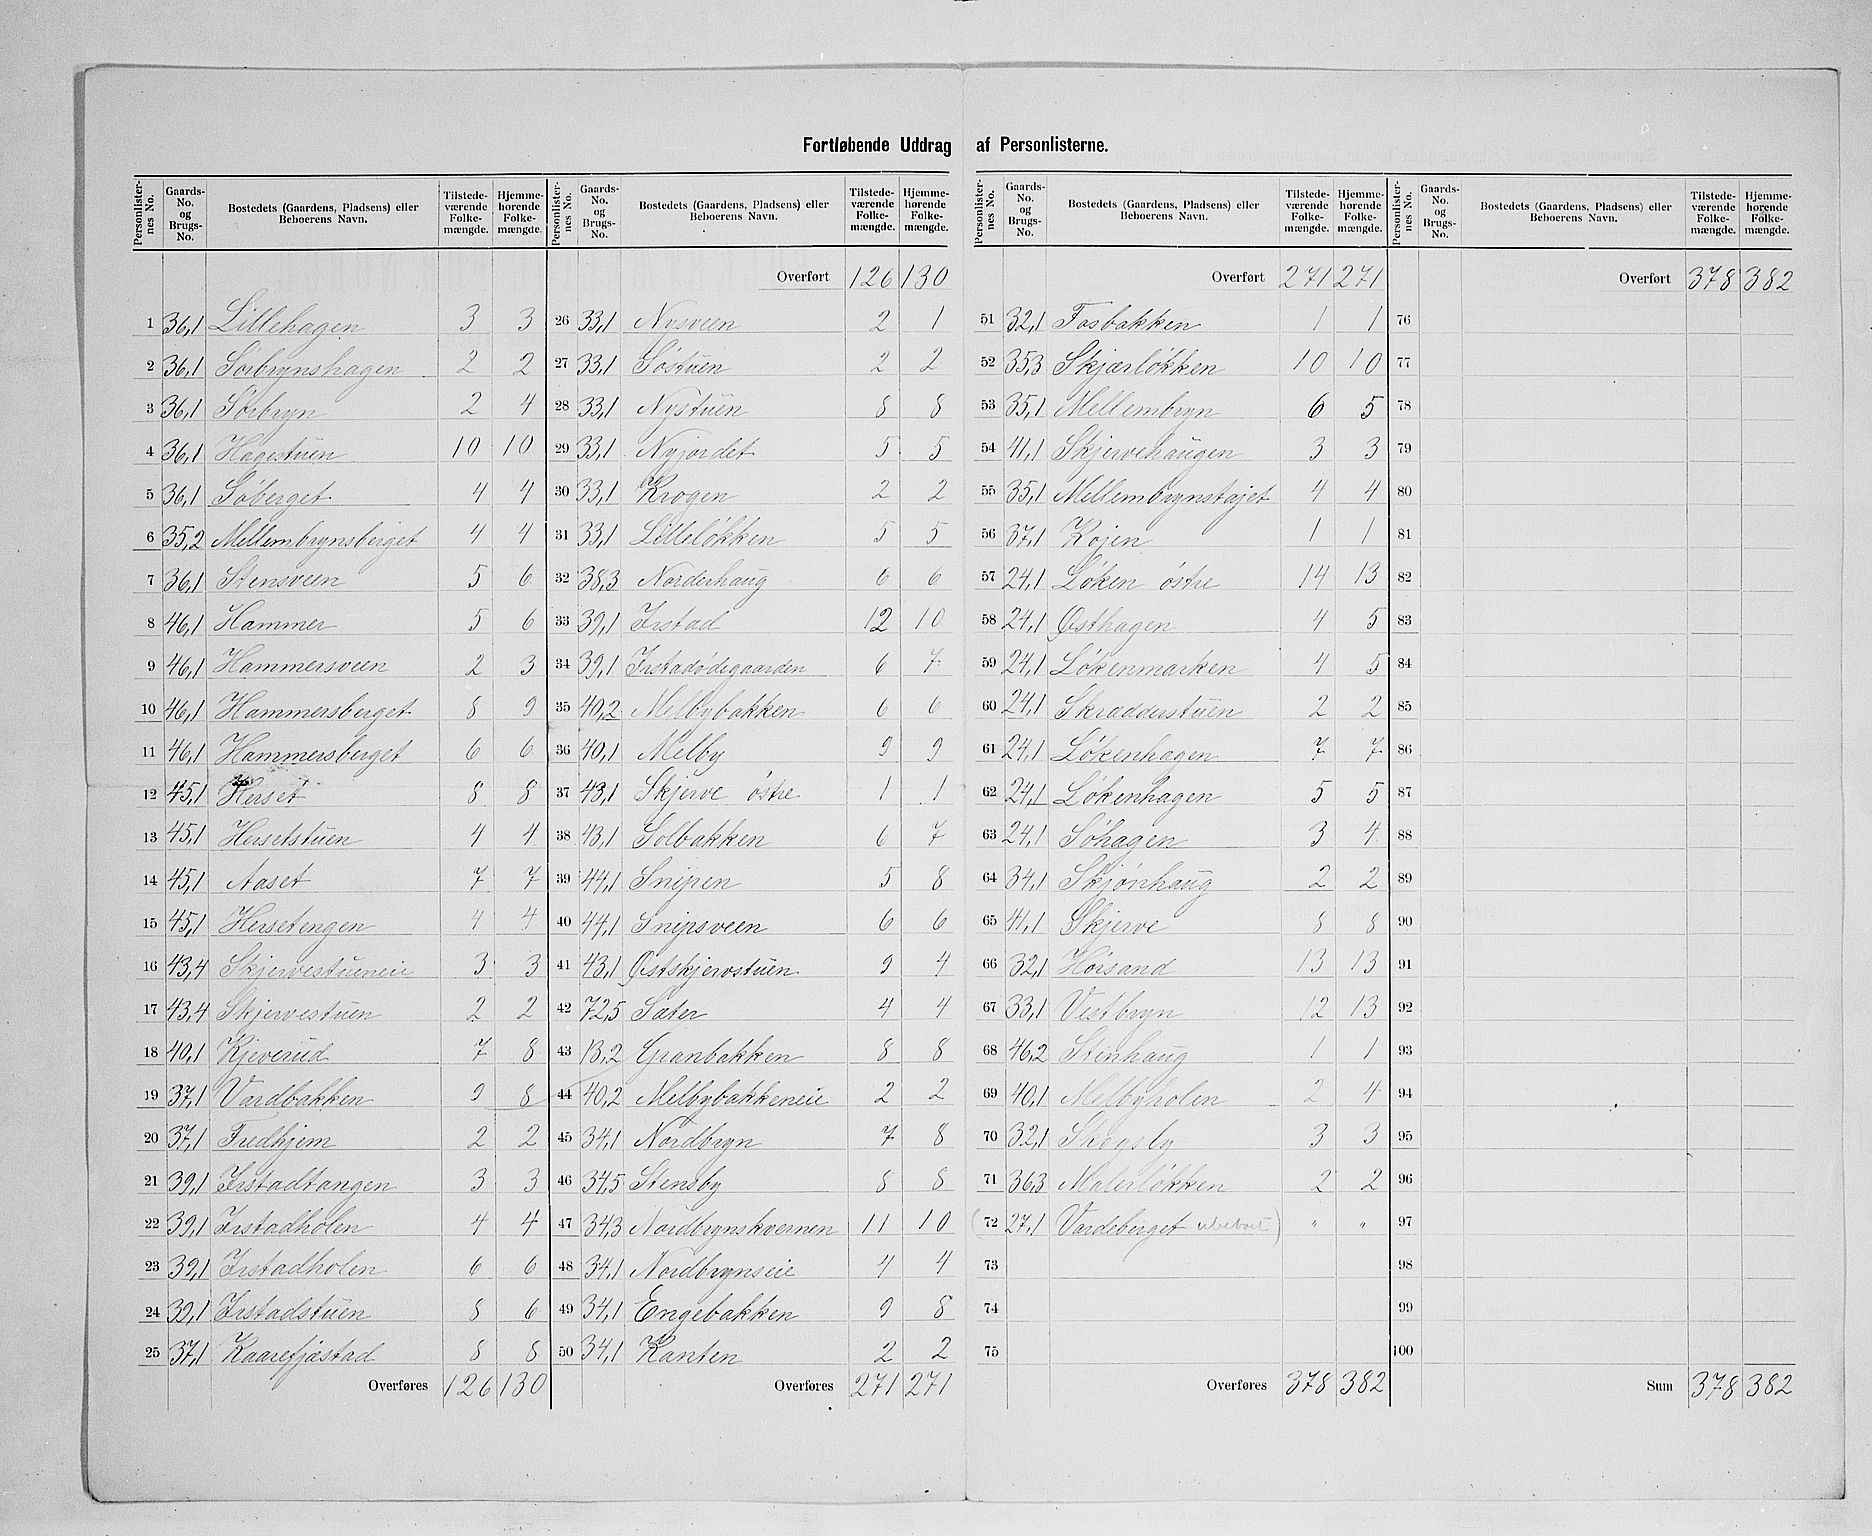 Fortløbende Uddrag af Personlisterne.
Personlisternes No. Gaards-No. og Brugs-No. Bostedets (Gaardens, Pladsens) eller Beboerens Navn. Tilstedeværende Folkemængde. Hjemmehørende Folkemængde.
1 36,1 Lillehagen 3 3
2 36,1 Sørbrynshagen 2 2
3 36,1 Sørbryn 2 4
4 36,1 Hagestuen 10 10
5 36,1 Søberget 4 4
6 35,2 Mellembrynsberget 4 4
7 36,1 Stensveen 5 6
8 46,1 Hammer 5 6
9 46,1 Hammersveen 2 3
10 46,1 Hammersberget 8 9
11 46,1 Hammersberget 6 6
12 45,1 Herset 8 8
13 45,1 Hersetstuen 4 4
14 45,1 Aaset 7 7
15 45,1 Hersetengen 4 4
16 43,4 Skjervestueneie 3 3
17 43,4 Skjervestuen 2 2
18 40,1 Kjeverud 7 8
19 37,1 Vardbakken 9 8
20 37,1 Fredhjem 2 2
21 39,1 Irstadtangen 3 3
22 39,1 Irstadholen 4 4
23 39,1 Irstadholen 6 6
24 39,1 Irstadstuen 8 6
25 37,1 Kaarefjæstad 8 8
Overføres 126 130
Personlisternes No. Gaards-No. og Brugs-No. Bostedets (Gaardens, Pladsens) eller Beboerens Navn. Tilstedeværende Folkemængde. Hjemmehørende Folkemængde.
Overført 126 130
26 33,1 Nysveen 2 1
27 33,1 Søstuen 2 2
28 33,1 Nystuen 8 8
29 33,1 Nyjordet 5 5
30 33,1 Krogen 2 2
31 33,1 Lilleløkken 5 5
32 38,3 Norderhaug 6 6
33 39,1 Irstad 12 10
34 39,1 Irstadødegaarden 6 7
35 40,2 Melbybakken 6 6
36 40,1 Melby 9 9
37 43,1 Skjerve østre 1 1
38 43,1 Solbakken 6 7
39 44,1 Snipen 5 8
40 44,1 Snipsveen 6 6
41 43,1 Østskjervstuen 9 4
42 72,5 Sæter 4 4
43 13,2 Granbakken 8 8
44 40,2 Melbybakkeneie 2 2
45 34,1 Nordbryn 7 8
46 34,5 Stensby 8 8
47 34,3 Nordbrynskvernen 11 10
48 34,1 Nordbrynseie 4 4
49 34,1 Engebakken 9 8
50 34,1 Kanten 2 2
Overføres 271 271
Personlisternes No. Gaards-No. og Brugs-No. Bostedets (Gaardens, Pladsens) eller Beboerens Navn. Tilstedeværende Folkemængde. Hjemmehørende Folkemængde.
Overført 271 271
51 32,1 Fosbakken 1 1
52 35,3 Skjærløkken 10 10
53 35,1 Mellembryn 6 5
54 41,1 Skjervehaugen 3 3
55 35,1 Mellembrynstajet 4 4
56 37,1 Kojen 1 1
57 24,1 Løken østre 14 13
58 24,1 Østhagen 4 5
59 24,1 Løkenmarken 4 5
60 24,1 Skrædderstuen 2 2
61 24,1 Løkenhagen 7 7
62 24,1 Løkenhagen 5 5
63 24,1 Søhagen 3 4
64 34,1 Skjønhaug 2 2
65 41,1 Skjerve 8 8
66 32,1 Horsand 13 13
67 33,1 Vestbryn 12 13
68 46,2 Stenhaug 1 1
69 40,1 Melbyholen 2 4
70 32,1 Skogsby 3 3
71 36,3 Malerløkken 2 2
(72 27,1 Vardeberget ubeboet) " "
73
74
75
Overføres 378 382
Personlisternes No. Gaards-No. og Brugs-No. Bostedets (Gaardens, Pladsens) eller Beboerens Navn. Tilstedeværende Folkemængde. Hjemmehørende Folkemængde.
Overført 378 382
76
77
78
79
80
81
82
83
84
85
86
87
88
89
90
91
92
93
94
95
96
97
98
99
100
Sum 378 382